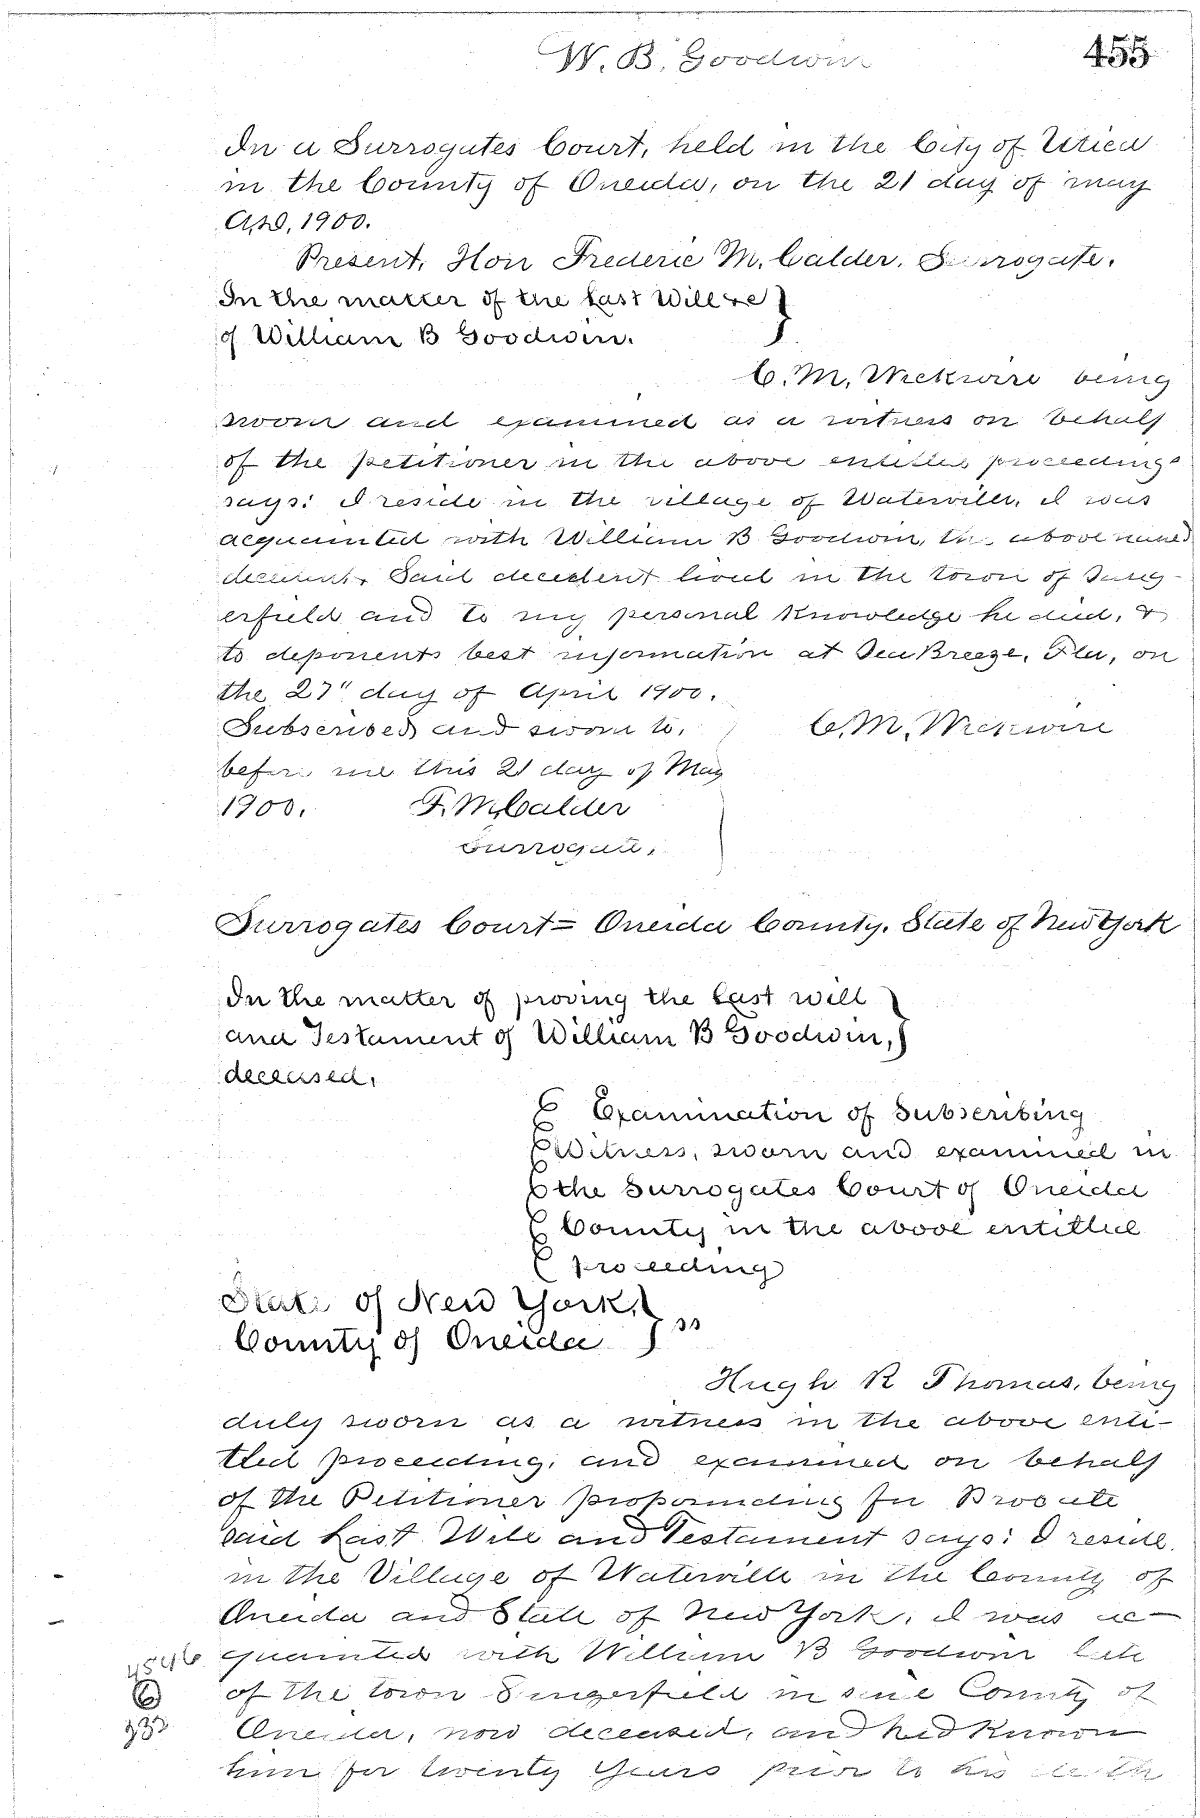 W. B. Goodwin
455
In a Surrogates Court, held in the City of Utica
in the County of Oneida, on the 21 day of may
A.D. 1900.
Present, Hon Frederic M. Calder. Surrogate.
In the matter of the last Will &c
of William B Goodwin.
C. M. Wickwire being
sworn and examined as a witness on behalf
of the petitioner in the above entitled proceeding
says: I reside in the village of Waterville. I was
acquainted with William B Goodwin, the above named
decedent. Said decedent lived in the town of Sang-
erfield and to my personal knowledge he died, &
to deponents best information at Sea Breeze, Fla, on
the 27" day of April 1900.
Subscribed and sworn to,
C. M. Wickwire
before me this 21 day of May
1900. F. M. Calder
Surrogate.
Surrogates Court= Oneida County. State of New York
In the matter of proving the last will
and Testament of William B Goodwin,
deceased.
Examination of Subscribing
Witness, sworn and examined in
the Surrogates Court of Oneida
County in the above entitled
proceeding
State of New York.
County of Oneida } ss
Hugh R Thomas, being
duly sworn as a witness in the above enti-
tled proceeding, and examined on behalf
of the Petitioner propounding for Probate
said Last Will and Testament says: I reside
in the Village of Waterville in the County of
Oneida and State of New York. I was ac-
quainted with William B Goodwin late
of the town Sangerfield in said County of
Oneida, now deceased, and had known
him for twenty years prior to his death
4546
6